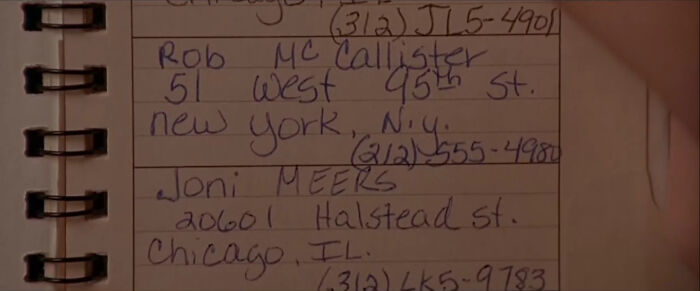 Chicago, IL.
(312) JL5-4901
Rob McCallister
51 West 95th St.
new york, N.y.
(212) 555-4980
Joni MEERS
20601 Halstead st.
Chicago, IL.
(312) LK5-9783